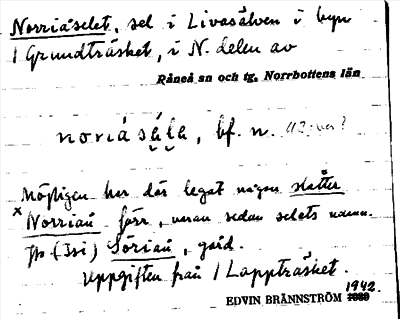 Norriåselet, sel i Livasälven i byn
1 Grundträsket, i N. delen av
Råneå sn och tg. Norrbottens län
noriá sálə, bf. n.
Möjligen har där legat någon slåtter
x Norriån förr, varav sedan selets namn.
Jfr (Isi) Sörian, gård.
Uppgiften från 1 Lappträsket.
EDVIN BRÄNNSTRÖM 1942.